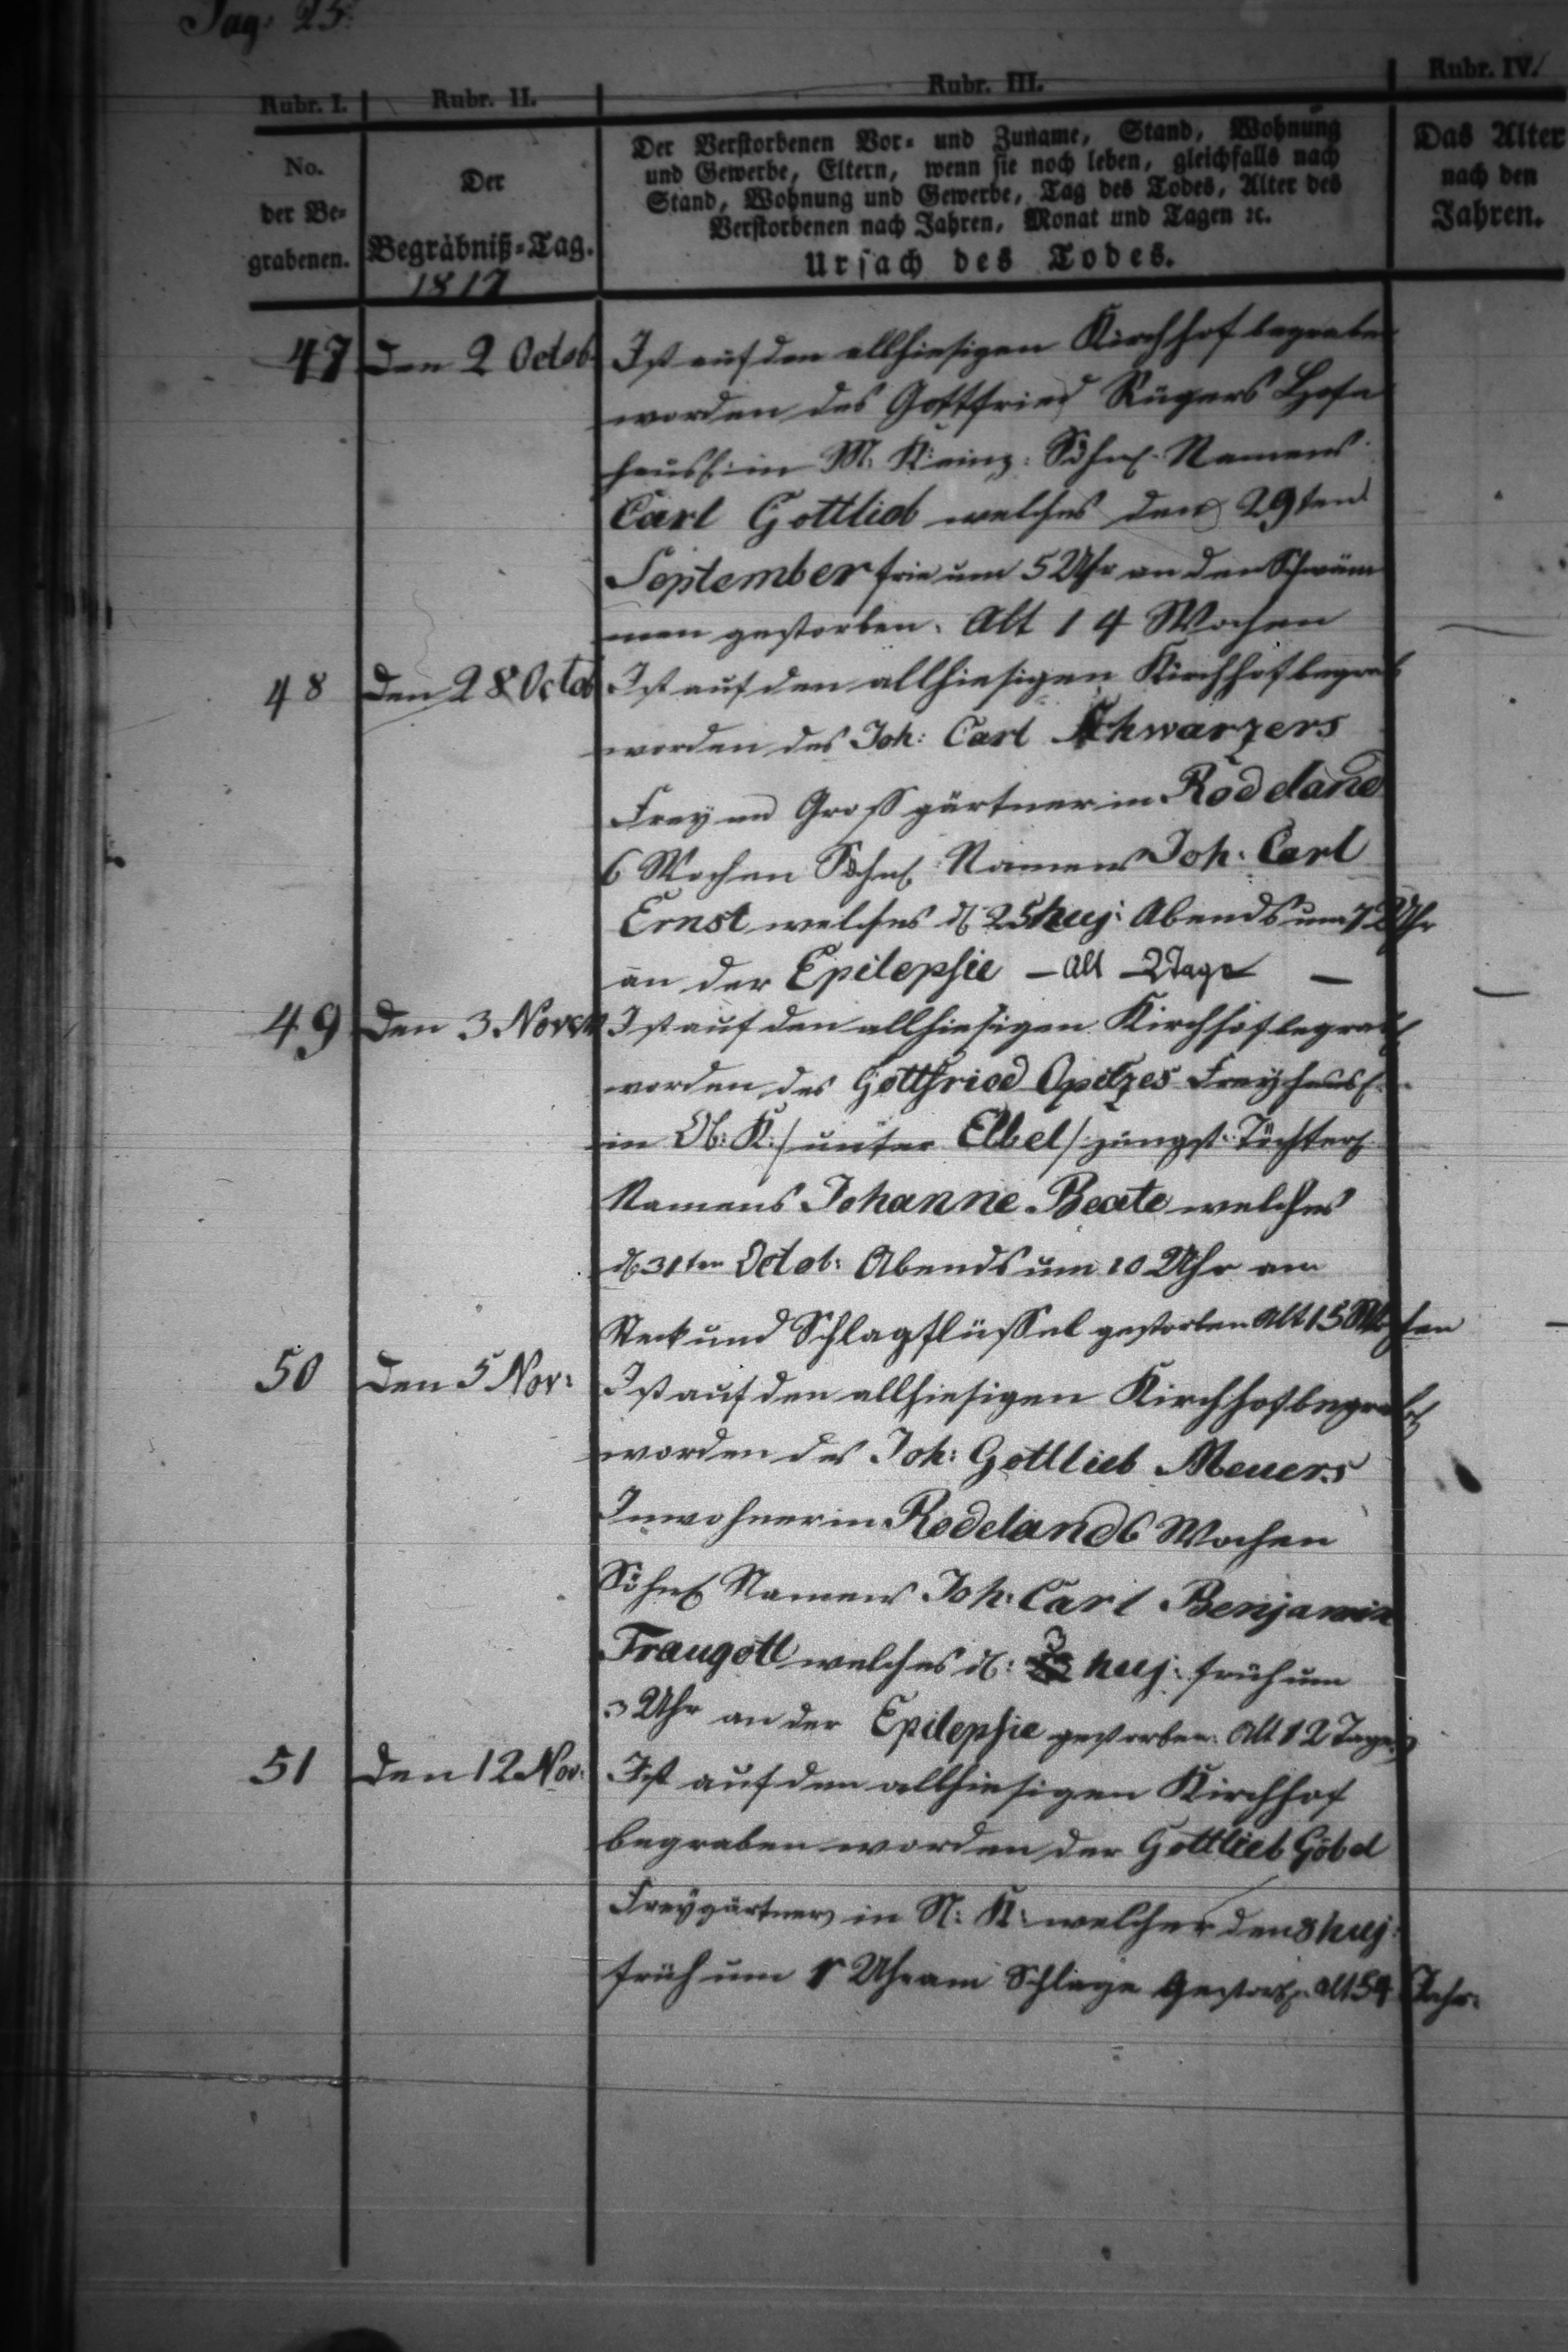 Pag: 25.
Rubr. I. Rubr. II. Rubr. III. Rubr. IV.
No.
der Be-
grabenen.
Der
Begräbniß-Tag.
1817
Der Verstorbenen Vor- und Zuname, Stand, Wohnung
und Gewerbe, Eltern, wenn sie noch leben, gleichfalls nach
Stand, Wohnung und Gewerbe, Tag des Todes, Alter des
Verstorbenen nach Jahren, Monat und Tagen ꝛc.
Ursach des Todes.
Das Alter
nach den
Jahren.
47 den 2 Octob Ist auf den allhiesigen Kirchhof begraben
worden des Gottfried Rügers Hofe
häusl: in M: K: einz: Söhnl. Namens
Carl Gottlieb welches den 29ten
September frie um 5 Uhr an den Schwäm
men gestorben. Alt 14 Wochen
48 den 28 Octob Ist auf den allhiesigen Kirchhof begrab
worden des Joh: Carl Schwarzers
Frey und Grossgärtner in Rodeland
6 Wochen Söhnl. Namens Joh: Carl
Ernst welches d. 25 huj: Abends um 7 Uhr
an der Epilepsie – Alt 2 Tage –
49 den 3 Novem Ist auf den allhiesigen Kirchhof begrab
worden des Gottfried Opitzes Freyhäusl.
in Ob: K:/ unter Elbel/ jüngst: Töchterl.
Namens Johanne Beate welches
d. 31ten Octob: Abends um 10 Uhr am
Steck und Schlagflüssel gestorben Alt 15 Wochen
50 den 5 Nov: Ist auf den allhiesigen Kirchhof begrab
worden des Joh: Gottlieb Meuers
Inwohner in Rodeland 6 Wochen
Söhnl. Namens Joh: Carl Benjamin
Traugott welches d: 3 huj: früh um
3 Uhr an der Epilepsie gestorben. Alt 12 Tage
51 den 12 Nov: Ist auf den allhiesigen Kirchhof
begraben worden der Gottlieb Göbel
Freygärtner in N: K: welcher den 8 huj:
früh um 1 Uhr am Schlage gestorb. alt 54 Jahr.